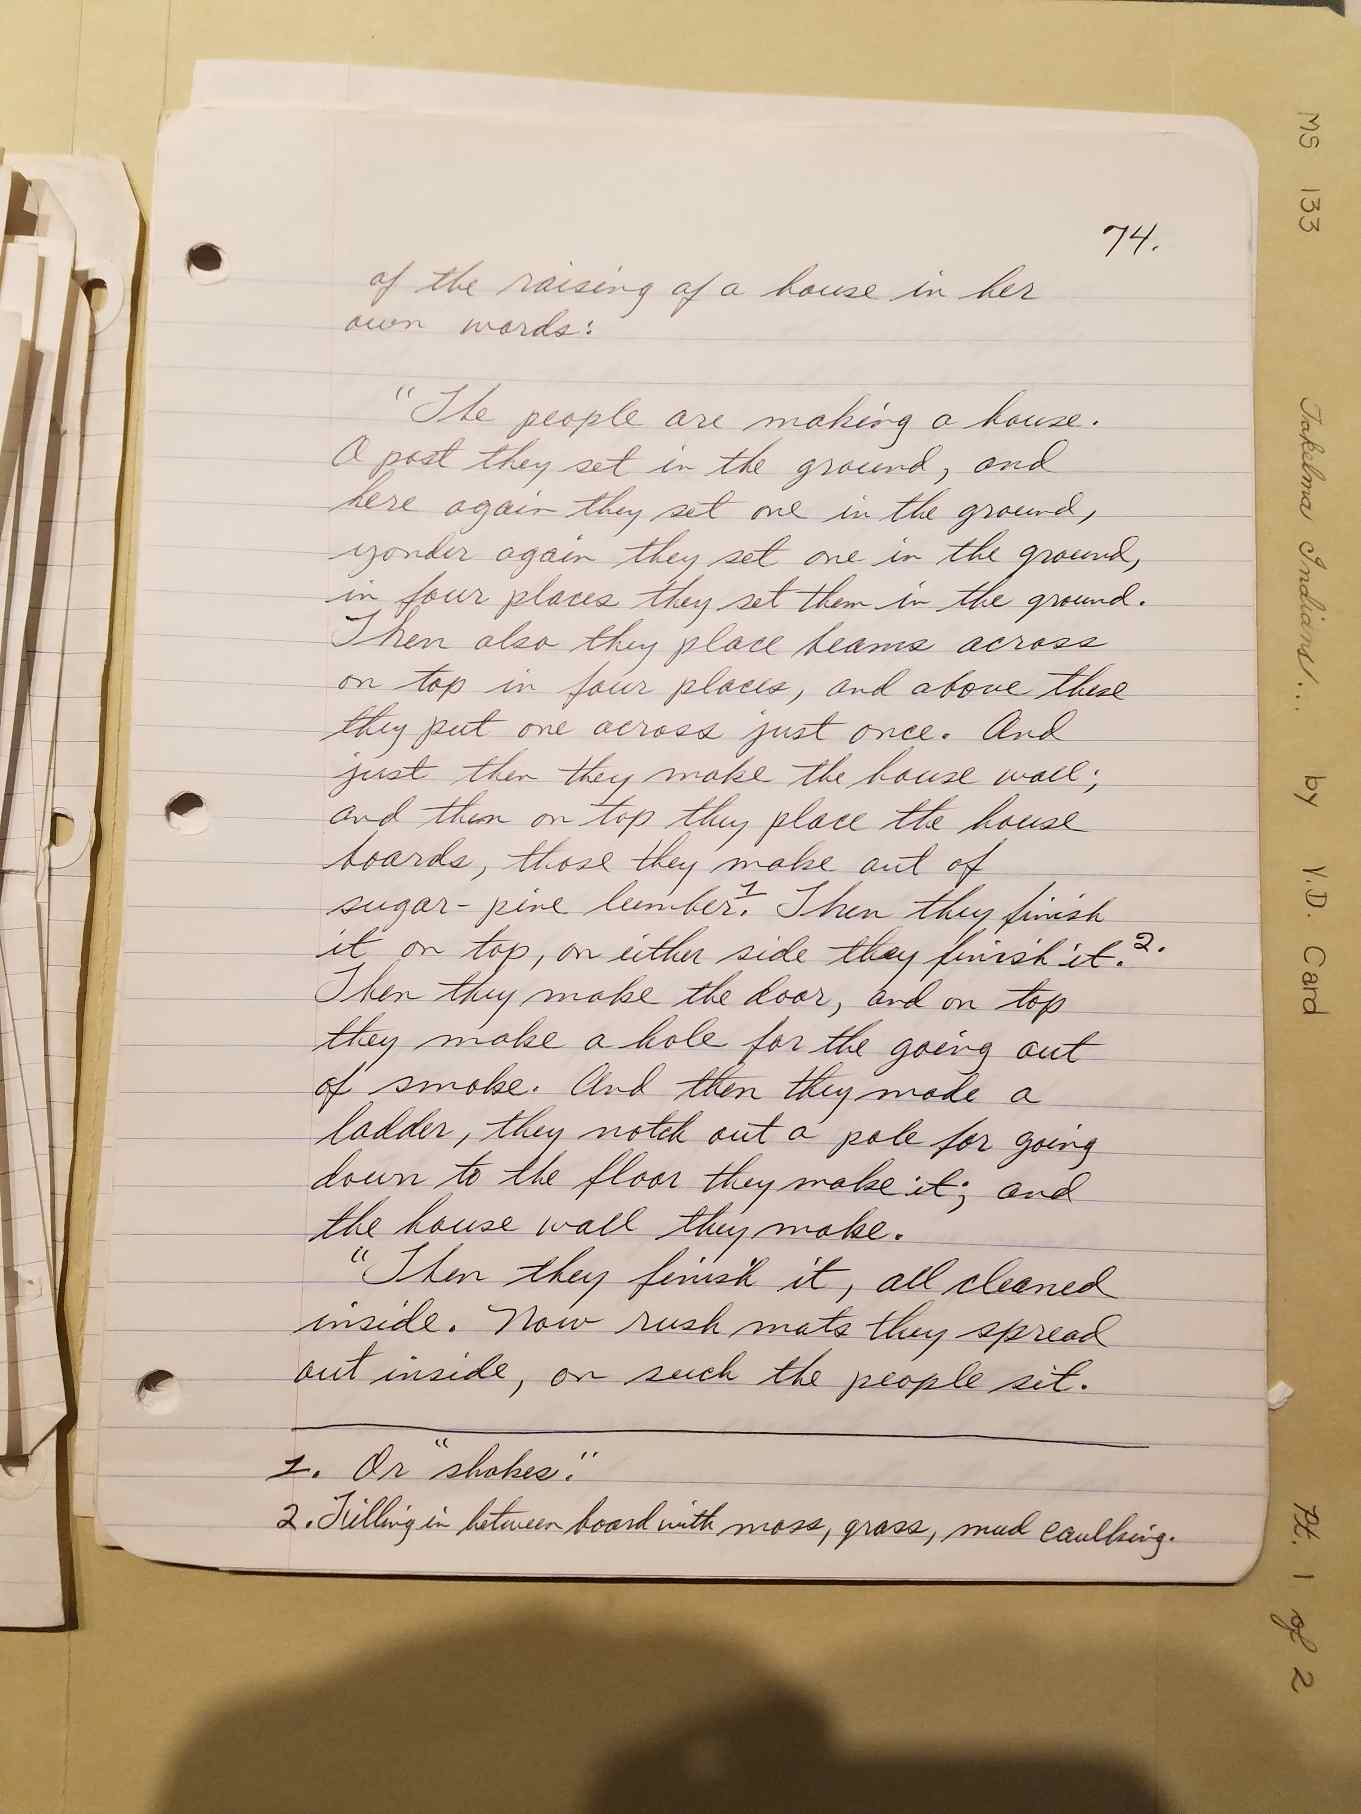 74.
of the raising of a house in her
own words:
"The people are making a house.
A post they set in the ground, and
here again they set one in the ground,
yonder again they set one in the ground,
in four places they set them in the ground.
Then also they place beams across
on top in four places, and above these
they put one across just once. And
just then they make the house wall;
and then on top they place the house
boards, those they make out of
sugar-pine lumber.1 Then they finish
it on top, on either side they finish it.2.
Then they make the door, and on top
they make a hole for the going out
of smoke. And then they made a
ladder, they notch out a pole for going
down to the floor they make it; and
the house wall they make.
"Then they finish it, all cleaned
inside. Now rush mats they spread
out inside, on such the people sit.
1. Or "shakes."
2. Filling in between board with moss, grass, mud caulking.
MS 133 Takelma Indians... by Y.D. Card Pt. 1 of 2